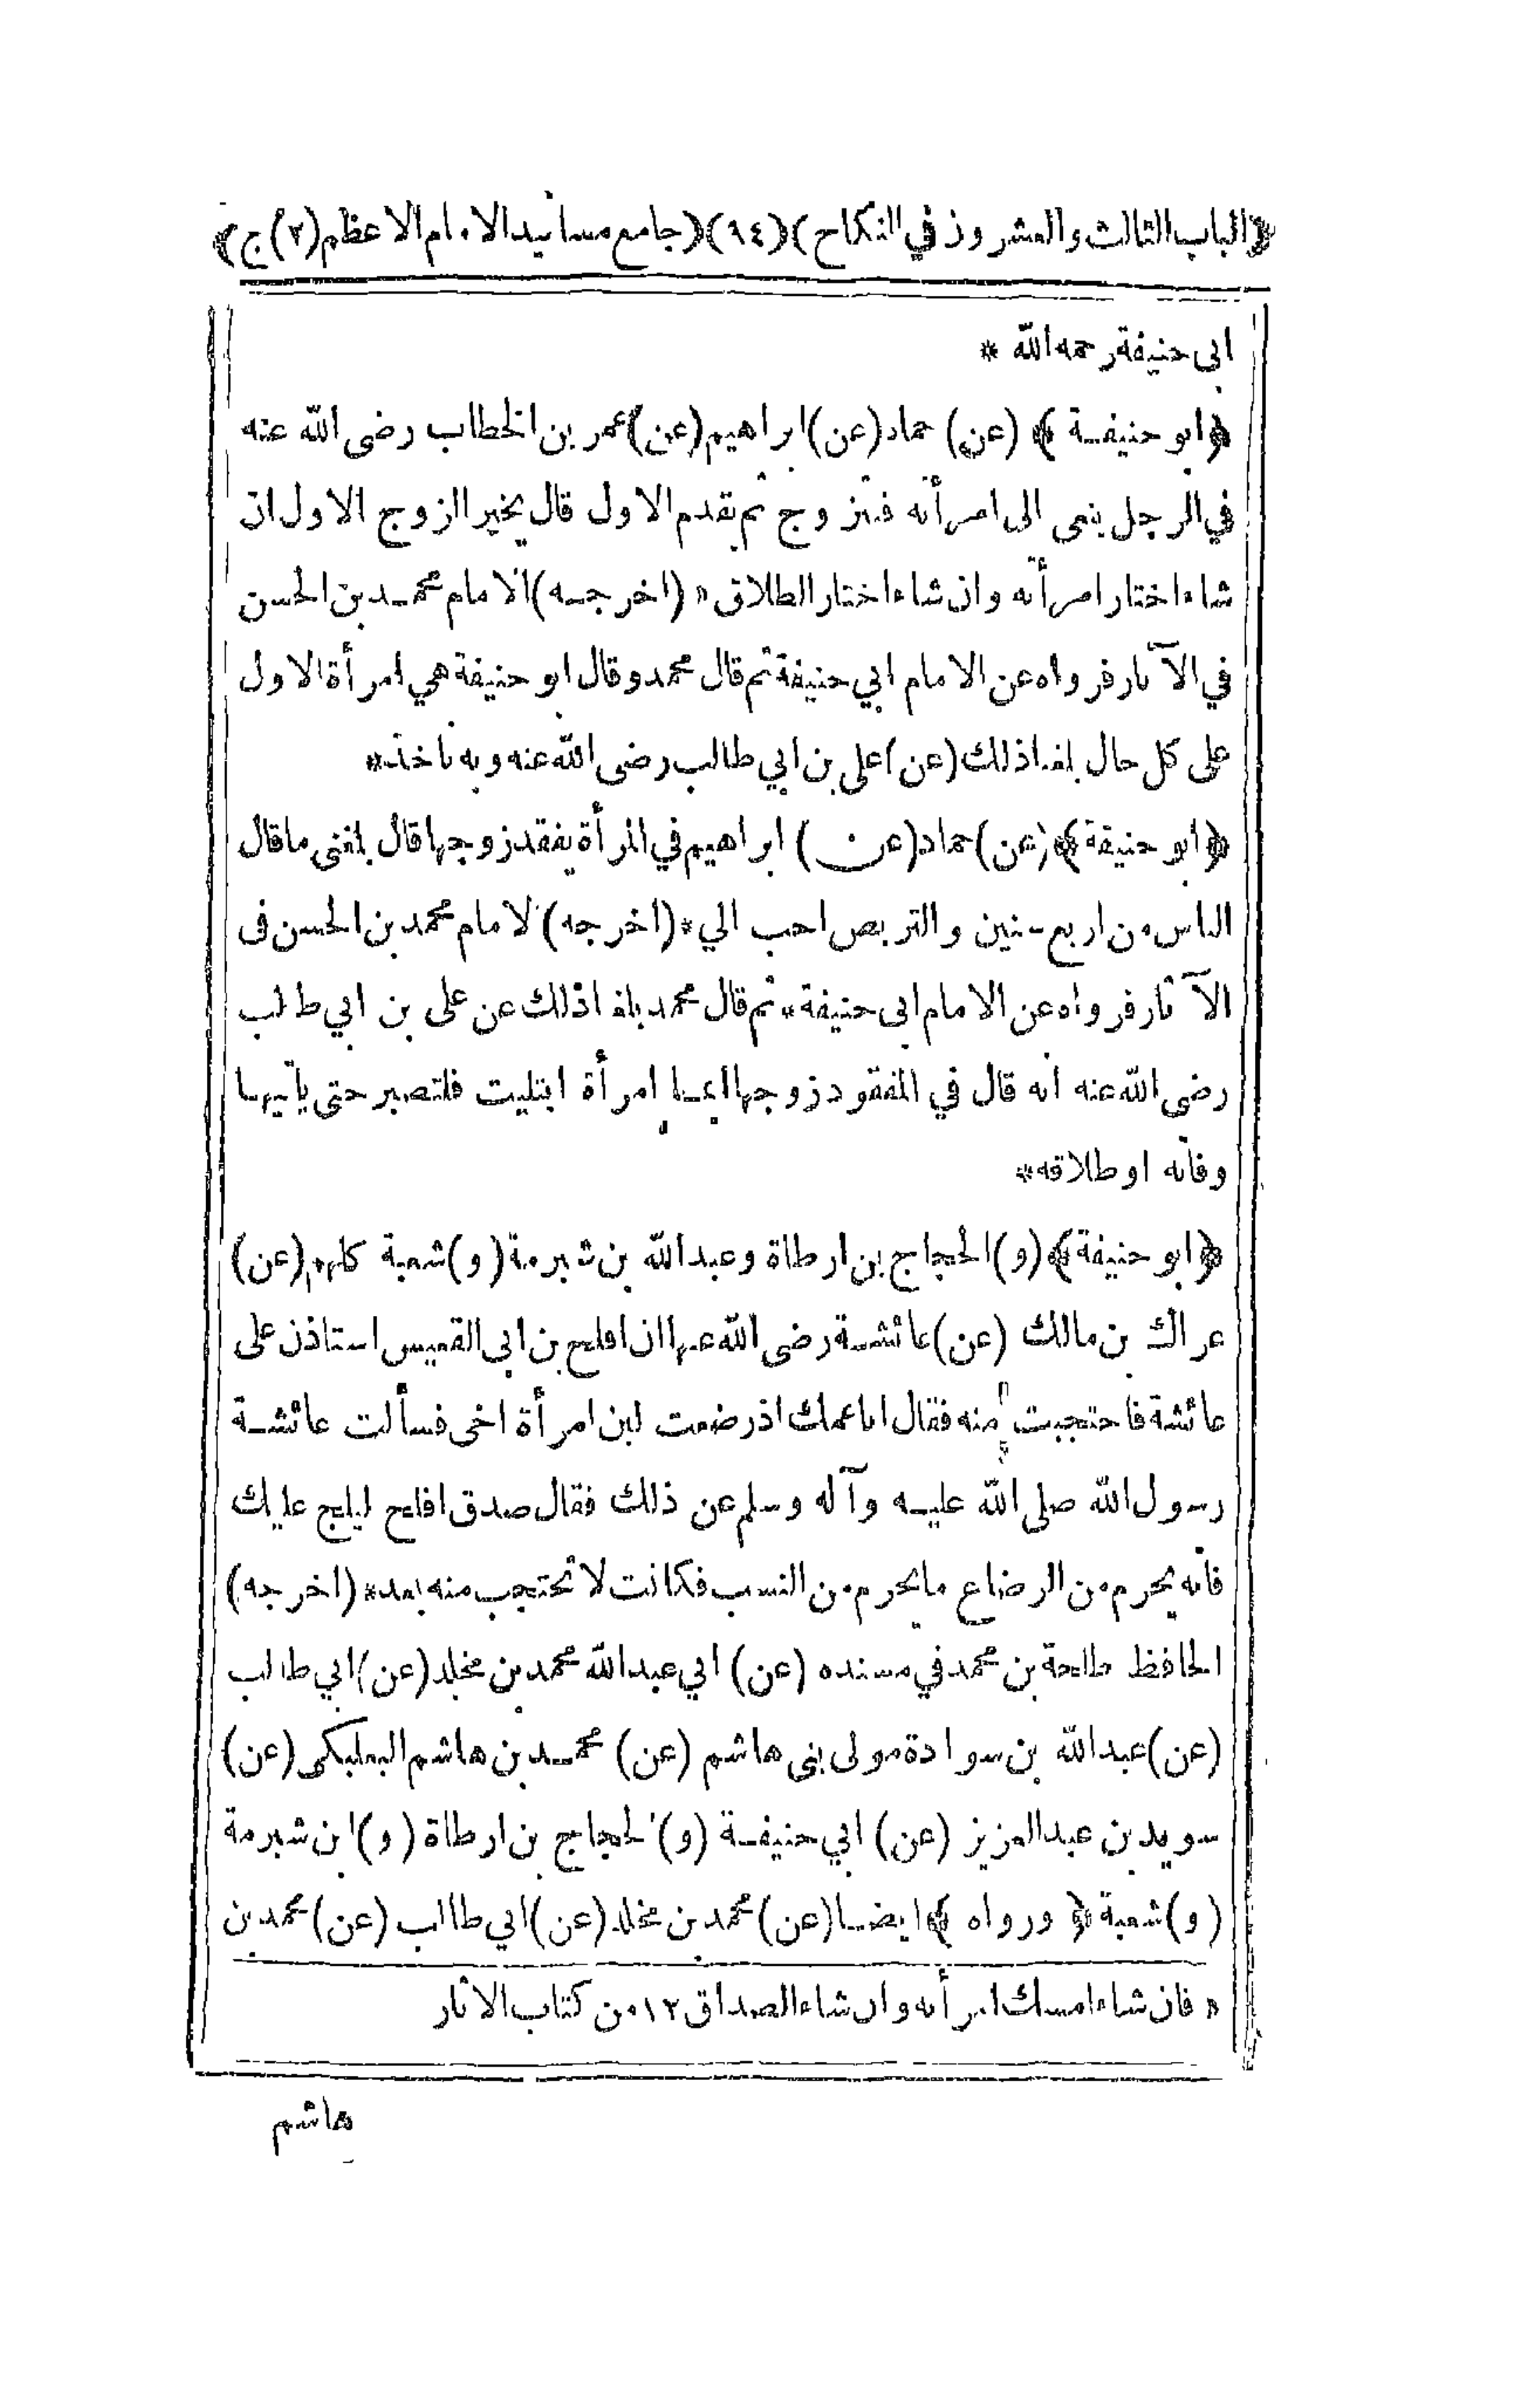 ﴿الباب الثالث والعشرون في النكاح﴾ (٩٤) ﴿جامع مسانيد الامام الاعظم (٢) ج﴾
ابى حنيفة رحمه الله *
﴿ابو حنيفة﴾ (عن) حماد (عن) ابراهيم (عن) عمر بن الخطاب رضى الله عنه
في الرجل ينعى الى امرأته فتزوج ثم يقدم الاول قال يخير الزوج الاول ان
شاء اختار امرأته وان شاء اختار الطلاق * (اخرجه) الامام محمد بن الحسن
في الآثار فرواه عن الامام ابي حنيفة ثم قال محمد وقال ابو حنيفة هي امرأة الاول
على كل حال بلغنا ذلك (عن) على بن ابي طالب رضى الله عنه وبه ناخذ *
﴿ابو حنيفة﴾ (عن) حماد (عن) ابراهيم في المرأة يفقد زوجها قال بلغنى ما قال
الناس من اربع سنين والتربص احب الي * (اخرجه) الامام محمد بن الحسن فى
الآثار فرواه عن الامام ابى حنيفة * ثم قال محمد بلغنا ذلك عن على بن ابي طالب
رضى الله عنه انه قال في المفقود زوجها ايما امرأة ابتليت فلتصبر حتى يأتيها
وفاته او طلاقه *
﴿ابو حنيفة﴾ (و) الحجاج بن ارطاة وعبد الله بن شبرمة (و) شعبة كلهم (عن)
عراك بن مالك (عن) عائشة رضى الله عنها ان افلح بن ابى القعيس استاذن على
عائشة فاحتجبت منه فقال انا عمك ارضعت لبن امرأة اخى فسألت عائشة
رسول الله صلى الله عليه وآله وسلم عن ذلك فقال صدق افلح ليلج عليك
فانه يحرم من الرضاع ما يحرم من النسب فكانت لا تحتجب منه بعد * (اخرجه)
الحافظ طلحة بن محمد في مسنده (عن) ابي عبد الله محمد بن مخلد (عن) ابي طالب
(عن) عبد الله بن سوادة مولى بنى هاشم (عن) محمد بن هاشم البعلبكى (عن)
سويد بن عبد العزيز (عن) ابي حنيفة (و) الحجاج بن ارطاة (و) ابن شبرمة
(و) شعبة ﴿ورواه﴾ ايضا (عن) محمد بن مخلد (عن) ابي طالب (عن) محمد بن
* فان شاء امسك امرأته وان شاء الصداق ١٢ من كتاب الاثار
هاشم